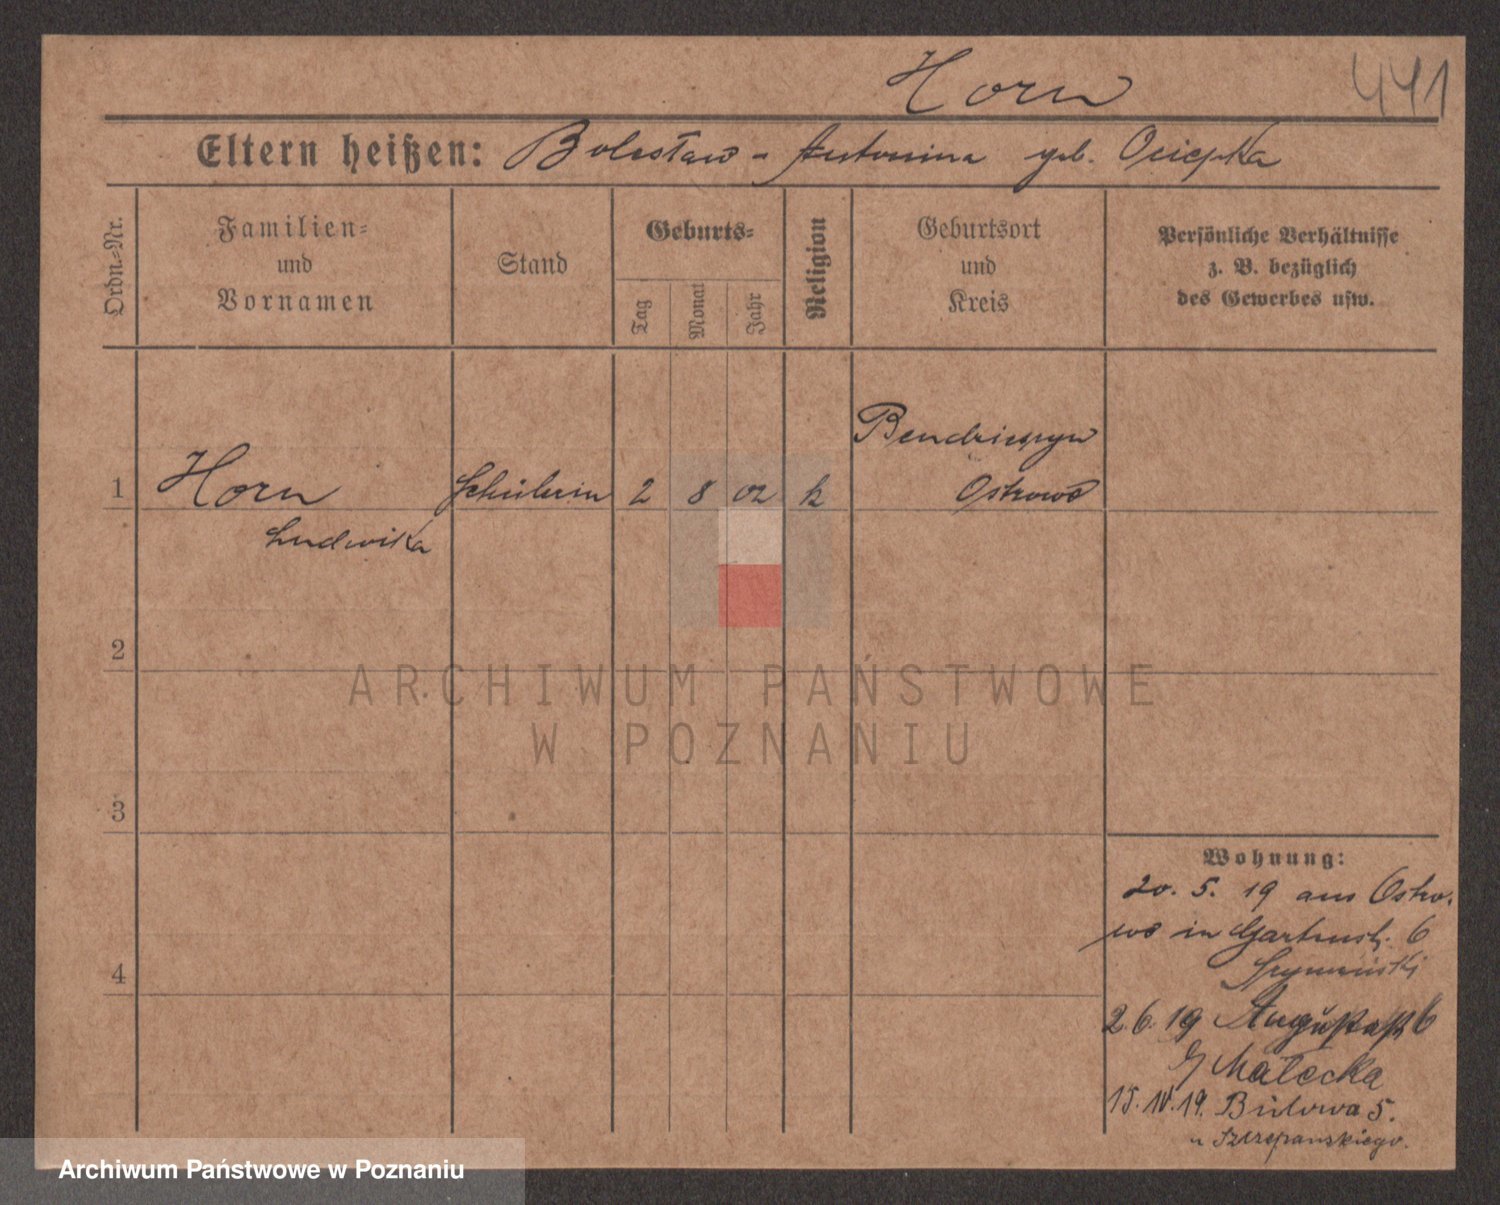 Horn
441
Eltern heißen: Bolesław - Antonina geb. Osiepka
Ordn.-Nr.
Familien-
und
Vornamen
Stand
Geburts-
Tag
Monat
Jahr
Religion
Geburtsort
und
Kreis
Persönliche Verhältnisse
z. B. bezüglich
des Gewerbes usw.
1
Horn
Ludwika
Schülerin
2
8
02
k
Ostrowo
2
3
4
Wohnung:
20. 5. 19 aus Ostro-
wo in Gartenstr. 6
Szymański
2.6.19 Augustastr 6
Małecka
15.IV.19. Bülowa 5.
u Szczepanskiego.
ARCHIWUM PAŃSTWOWE
W POZNANIU
Archiwum Państwowe w Poznaniu